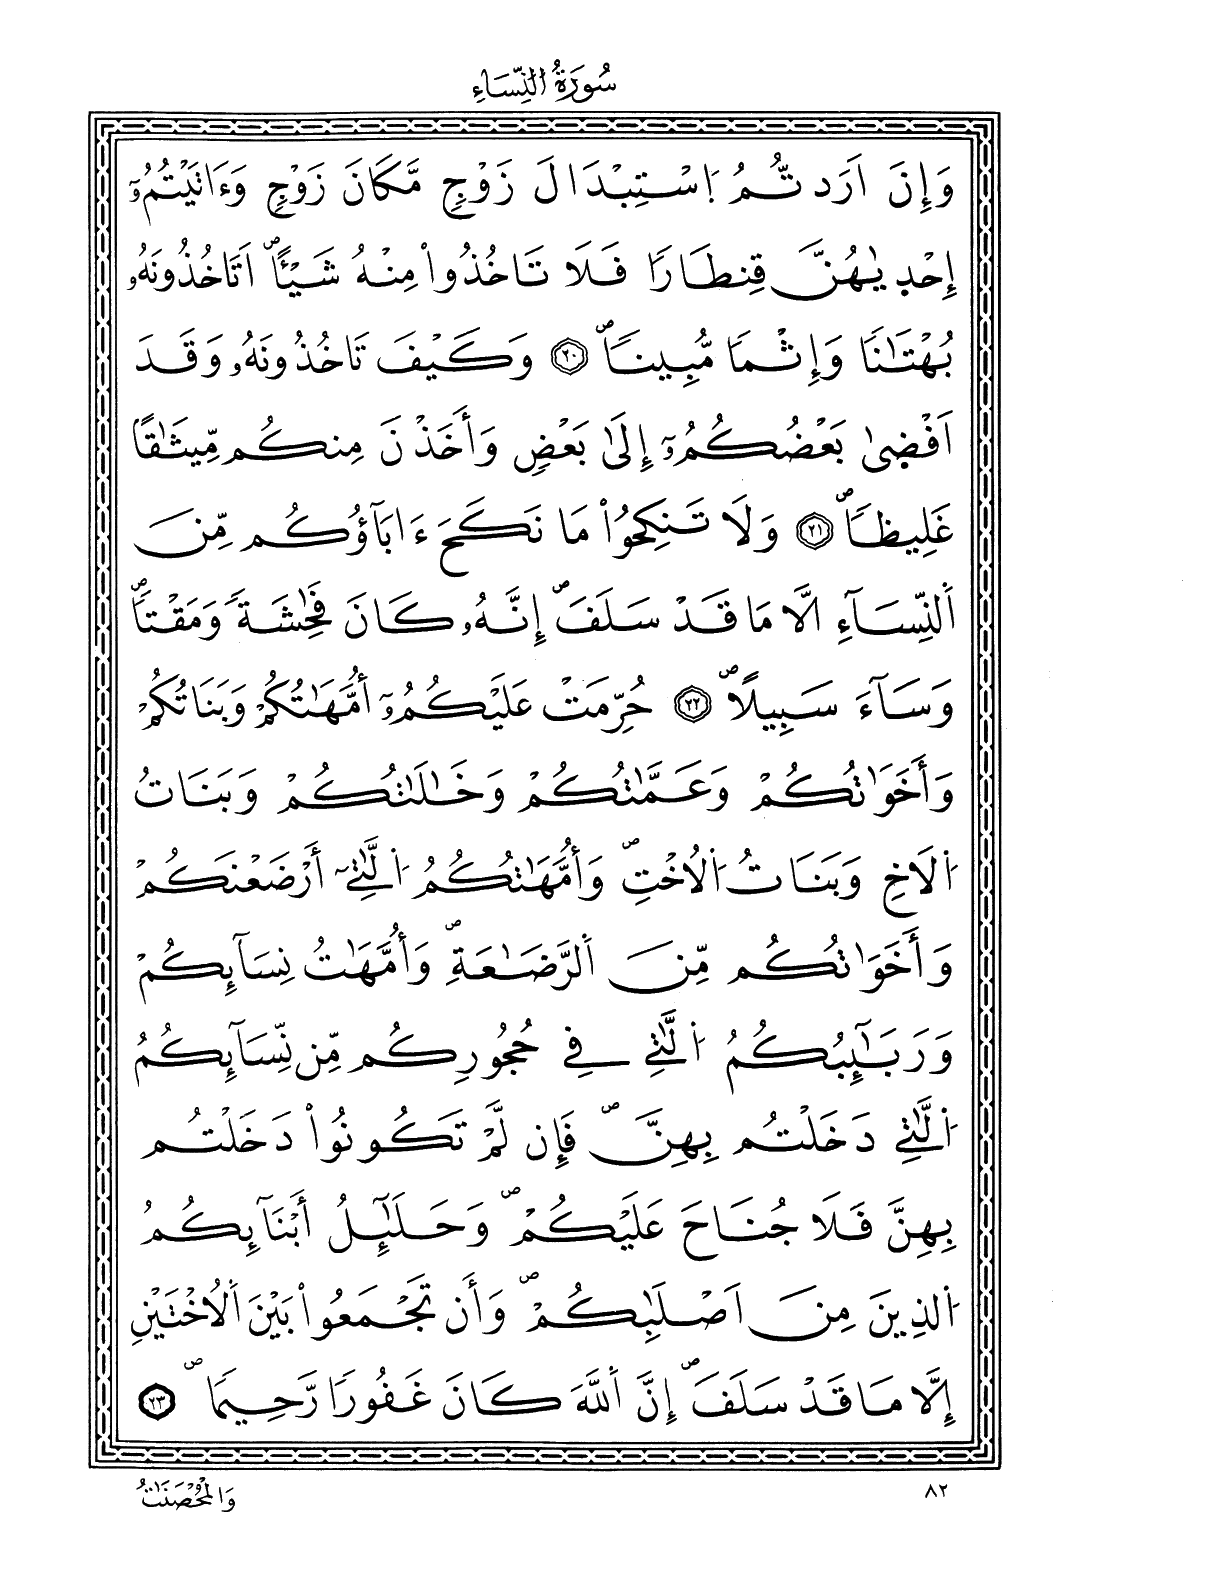 سُورَةُ النِّسَاءِ
وَإِنَ اَرَدتُّمُ اُ۪سْتِبْدَالَ زَوْجٖ مَّكَانَ زَوْجٖ وَءَاتَيْتُمُۥٓ
إِحْد۪يٰهُنَّ قِنطَاراٗ فَلَا تَاخُذُواْ مِنْهُ شَيْـٔاًۖ اَتَاخُذُونَهُۥ
بُهْتَٰناٗ وَإِثْماٗ مُّبِيناٗۖ ٢٠ وَكَيْفَ تَاخُذُونَهُۥ وَقَدَ
اَفْض۪يٰ بَعْضُكُمُۥٓ إِلَىٰ بَعْضٖ وَأَخَذْنَ مِنكُم مِّيثَٰقاً
غَلِيظاٗۖ ٢١ وَلَا تَنكِحُواْ مَا نَكَحَ ءَابَآؤُكُم مِّنَ
اَ۬لنِّسَآءِ الَّا مَا قَدْ سَلَفَۖ إِنَّهُۥ كَانَ فَٰحِشَةٗ وَمَقْتاٗۖ
وَسَآءَ سَبِيلاًۖ ٢٢ حُرِّمَتْ عَلَيْكُمُۥٓ أُمَّهَٰتُكُمْ وَبَنَاتُكُمْ
وَأَخَوَٰتُكُمْ وَعَمَّٰتُكُمْ وَخَٰلَٰتُكُمْ وَبَنَاتُ
اُ۬لَاخِ وَبَنَاتُ اُ۬لُاخْتِۖ وَأُمَّهَٰتُكُمُ اُ۬لَّٰتِےٓ أَرْضَعْنَكُمْ
وَأَخَوَٰتُكُم مِّنَ اَ۬لرَّضَٰعَةِۖ وَأُمَّهَٰتُ نِسَآئِكُمْ
وَرَبَٰٓئِبُكُمُ اُ۬لَّٰتِے فِے حُجُورِكُم مِّن نِّسَآئِكُمُ
اُ۬لَّٰتِے دَخَلْتُم بِهِنَّۖ فَإِن لَّمْ تَكُونُواْ دَخَلْتُم
بِهِنَّ فَلَا جُنَاحَ عَلَيْكُمْۖ وَحَلَٰٓئِلُ أَبْنَآئِكُمُ
اُ۬لذِينَ مِنَ اَصْلَٰبِكُمْۖ وَأَن تَجْمَعُواْ بَيْنَ اَ۬لُاخْتَيْنِ
إِلَّا مَا قَدْ سَلَفَۖ إِنَّ اَ۬للَّهَ كَانَ غَفُوراٗ رَّحِيماٗۖ ٢٣
وَالْمُحْصَنَٰتُ
٨٢